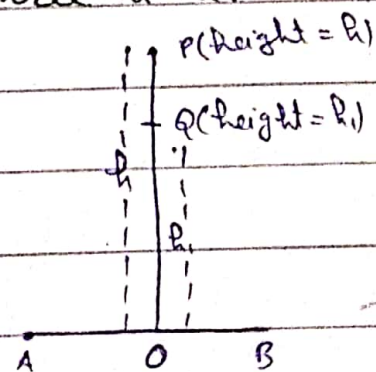 P(height = h)
Q(height = h₁)
h
h₁
A O B